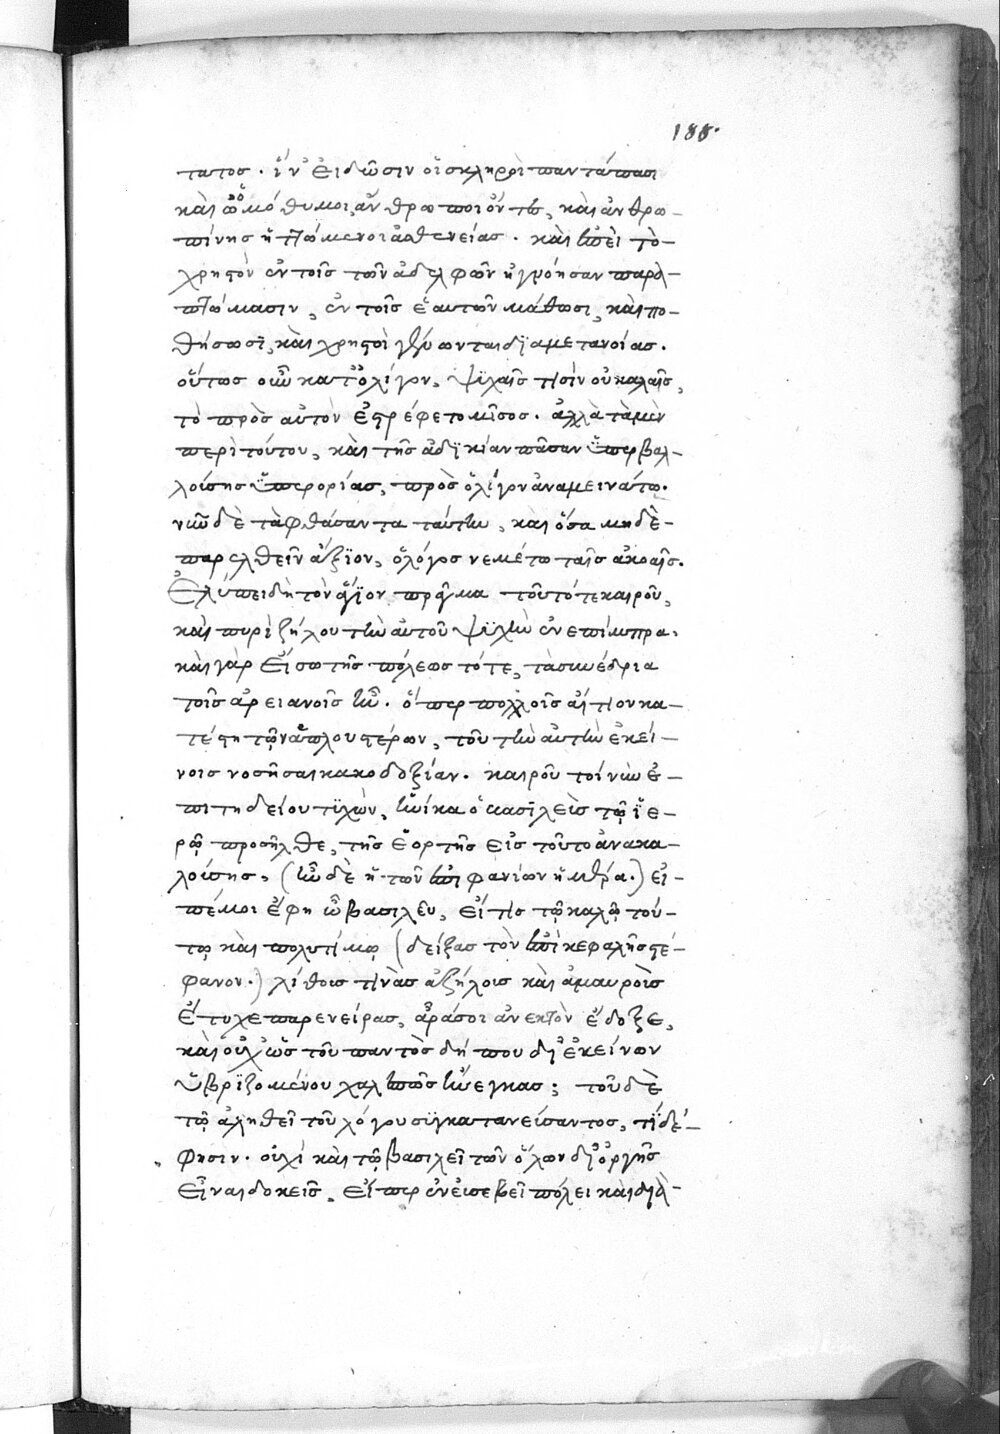 188.
τατος. ἵν' εἰδῶσιν οἱ σκληροὶ παντάπασι
καὶ ὠμόθυμοι, ἄνθρωποι ὄντες, καὶ ἀνθρω-
πίνης ἡττώμενοι ἀσθενείας. καὶ ἐπεὶ τὸ-
χρηστὸν ἐν τοῖς τῶν ἀδελφῶν ἠγνόησαν παρα-
πτώμασιν, ἐν τοῖς ἑαυτῶν μάθωσι, καὶ πο-
θήσωσι, καὶ χρηστοὶ γένωνται διὰ μετανοίας.
οὕτως οὖν κατ' ὀλίγον, ψυχαῖς τισὶν οὐ καλαῖς,
τὸ πρὸς αὐτὸν ἐτρέφετο μῖσος. ἀλλὰ τὰ μὲν
περὶ τούτου, καὶ τῆς ἀδικίαν πᾶσαν ὑπερβαλ-
λούσης ὑπερορίας, πρὸς ὀλίγον ἀναμεινάτω.
νῦν δὲ τὰ φθάσαντα ταύτην, καὶ ὅσα μηδὲ-
παρελθεῖν ἄξιον, ὁ λόγος νεμέτω ταῖς ἀκοαῖς.
Ἐλύπει δὴ τὸν ἅγιον πρᾶγμα τοῦ τότε καιροῦ,
καὶ πυρὶ ζήλου τὴν αὐτοῦ ψυχὴν ἐνεπίμπρα.
καὶ γὰρ εἴσω τῆς πόλεως τότε, τὰ συνέδρια
τοῖς ἀρειανοῖς ἦν. ὅπερ πολλοῖς αἴτιον κα-
τέστη τῶν ἁπλουστέρων, τοῦ τὴν αὐτὴν ἐκεί-
νοις νοσῆσαι κακοδοξίαν. καιροῦ τοίνυν ἐ-
πιτηδείου τυχὼν, ἡνίκα ὁ βασιλεὺς τῷ ἱε-
ρῷ προσῆλθε, τῆς ἑορτῆς εἰς τοῦτο ἀνακα-
λούσης, (ἦν δὲ ἡ τῶν ἐπιφανίων ἡμέρα.) εἰ-
πέ μοι ἔφη ὦ βασιλεῦ, εἴ τις τῷ καλῷ τού-
τῳ καὶ πολυτίμῳ (δείξας τὸν ἐπὶ κεφαλῆς στέ-
φανον.) λίθους τινὰς ἀζήλους καὶ ἀμαυροὺς
ἔτυχε παρενείρας, ἆρά σοι ἀνεκτὸν ἔδοξε,
καὶ οὐχ ὡς τοῦ παντὸς δήπου δι' ἐκείνων
ὑβριζομένου χαλεπῶς ἤνεγκας; τοῦ δὲ
τῷ ἀληθεῖ τοῦ λόγου συγκατανεύσαντος, τί δέ-
φησιν. οὐχὶ καὶ τῷ βασιλεῖ τῶν ὅλων δι' ὀργῆς
εἶναι δοκεῖς, εἴπερ ἐν εὐσεβεῖ πόλει καὶ διὰ-